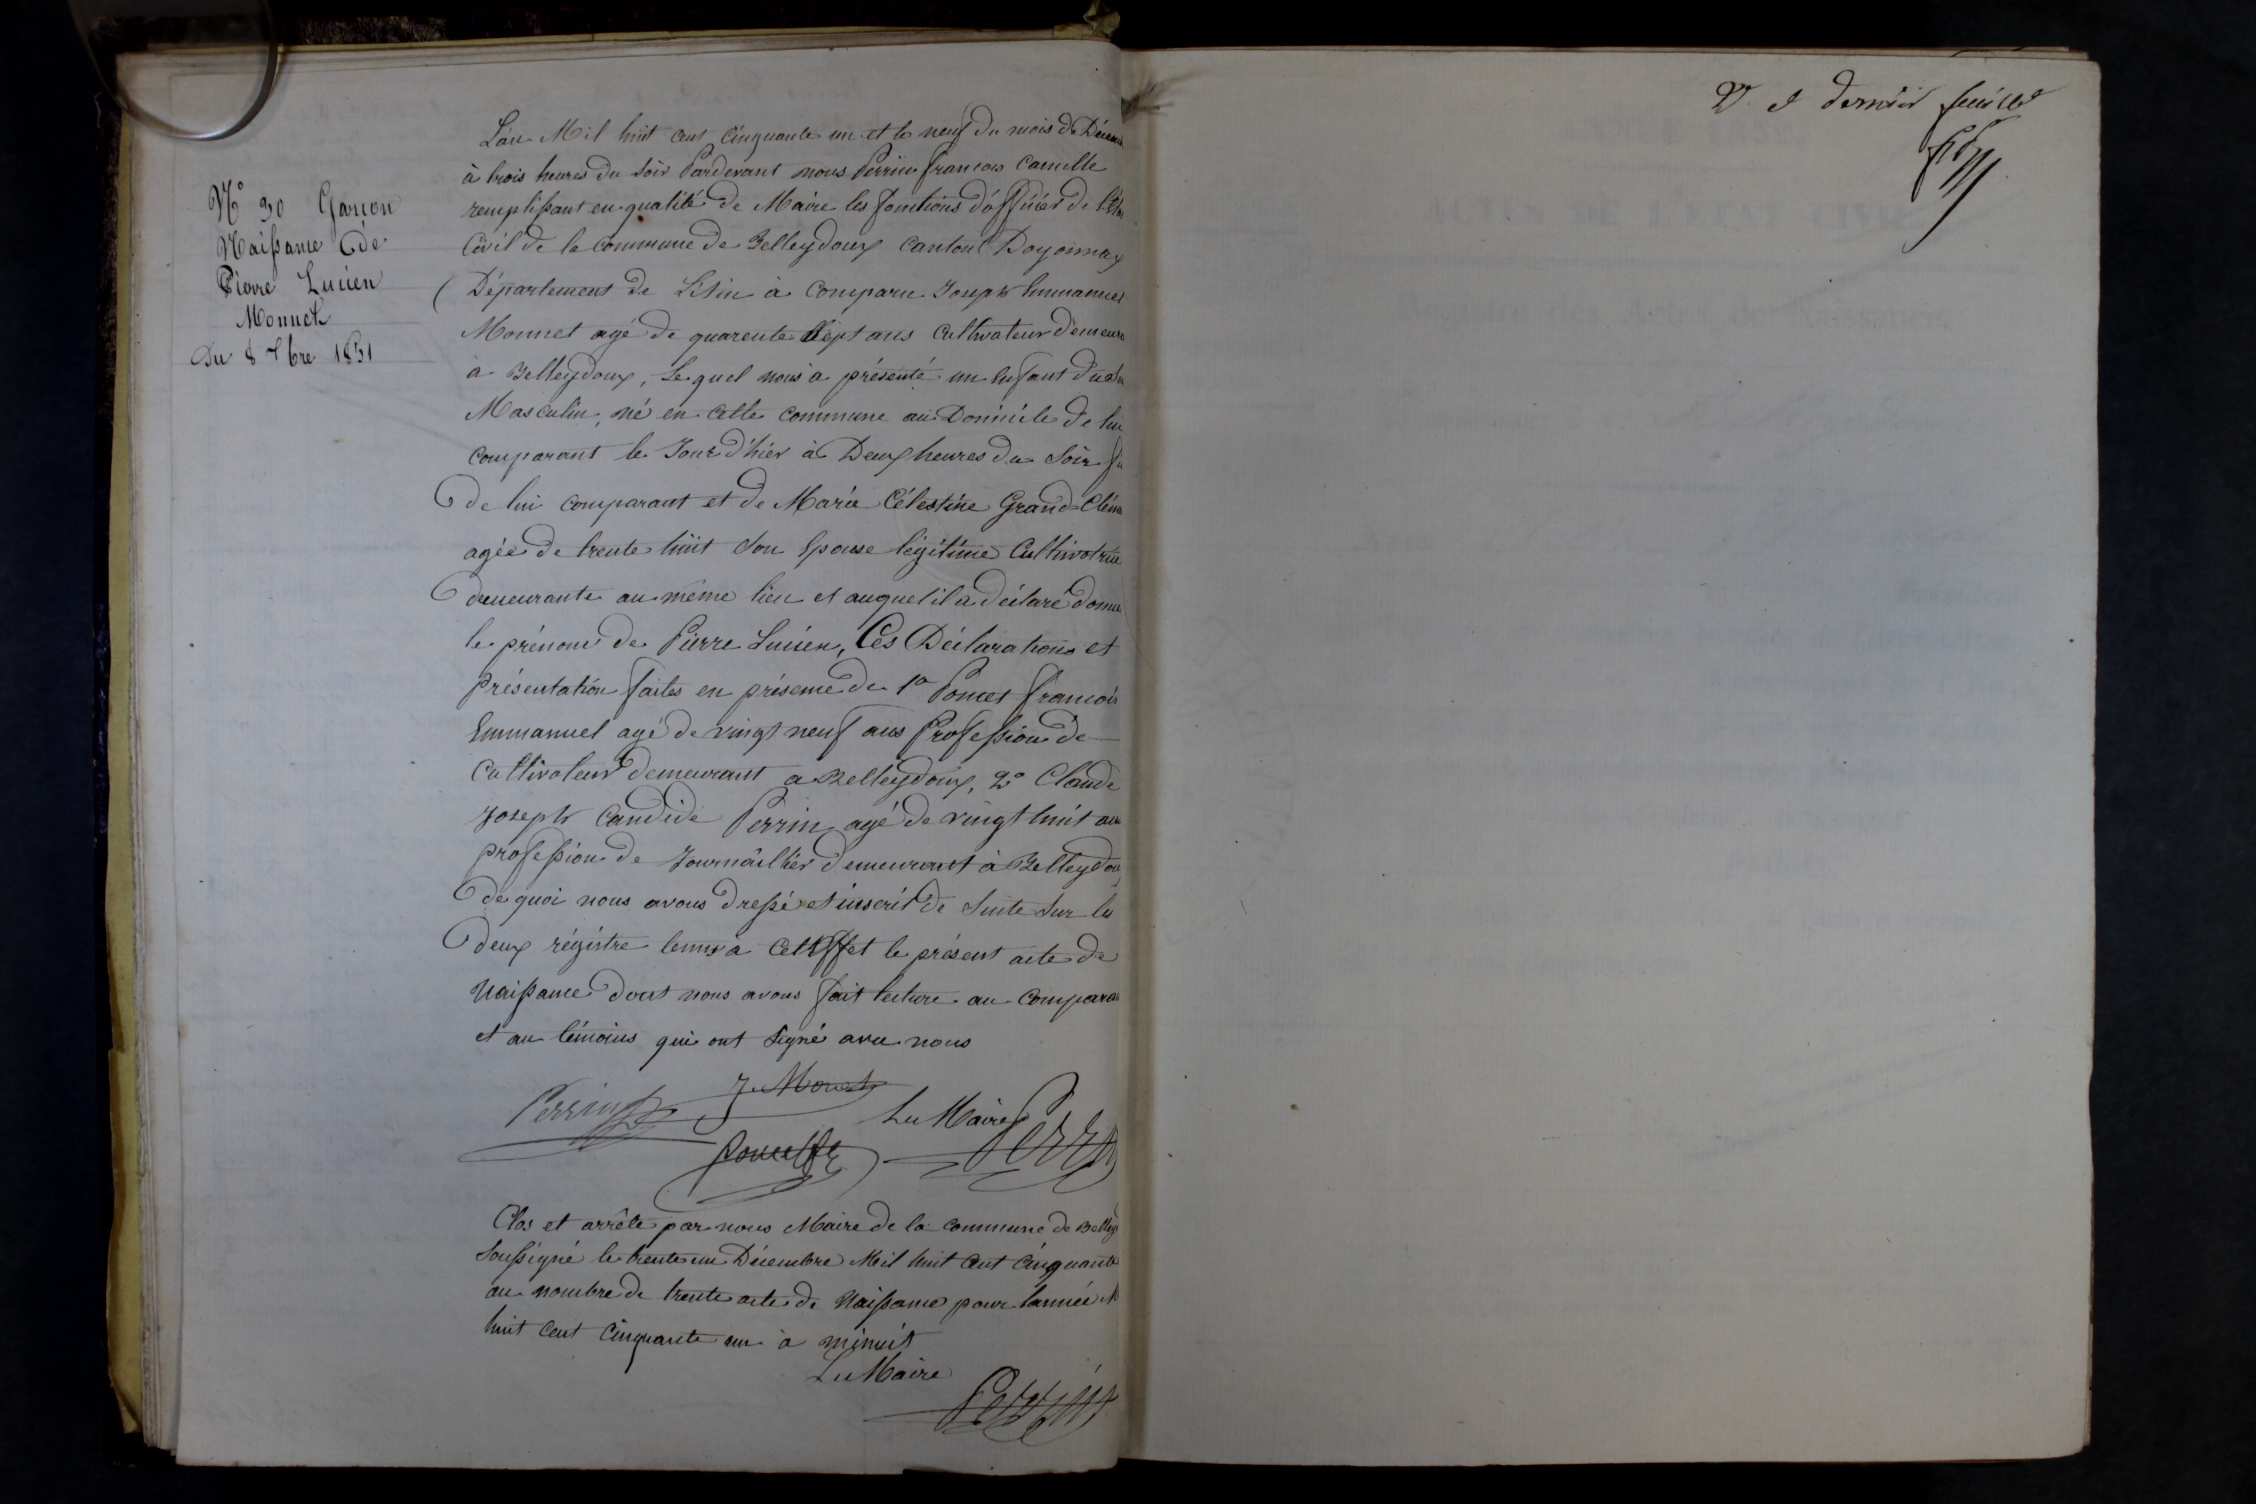 N° 30 Garçon
Naissance de
Pierre Lucien
Monnet
Du 8 Xbre 1851
L'an Mil huit cent cinquante un et le neuf du mois de Décem
à trois heures du soir Pardevant nous Perrin françois Camille
remplissant en qualité de Maire les fonctions d'officier de l'Etat
Civil de la commune de Belleydoux canton Doyonnax
Département de L'Ain à comparu Joseph Emmanuel
Monnet agé de quarente sept ans cultivateur demeura
à Belleydoux, Lequel nous a présenté un Enfant du
Masculin, né en cette commune au Domicile de lui
comparant le Jour d'hier à Deux heures du Soir
de lui comparant et de Marie Célestine Grand-Clém
agée de trente huit Son Epouse légitime Cultivatrice
demeurante au même lieu et auquel il a déclaré donner
le prénom de Pierre Lucien, Ces Déclarations et
présentation faites en présence de 1° Poncet françois
Emmanuel agé de vingt neuf ans Profession de
Cultivateur demeurant a Belleydoux, 2° Claude
Joseph Candide Perrin agé de vingt huit ans
profession de Journaillier demeurant à Belleydou
de quoi nous avons dressé et inscrit de Suite Sur les
deux régistre tenus à cet Effet le présent acte de
Naissance dont nous avons fait lecture au Compara
et au témoins qui ont Signé avec nous
J Monnet
Perrin
Le Maire Perrin
Poncet fe
Clos et arrêté par nous Maire de la commune de Belley
Soussigné le trente un Décembre Mil huit Cent Cinquante
au nombre de trente acte de Naissance pour l'année M
huit Cent Cinquante un à minuit
Le Maire
Perrin
et dernier feuillet